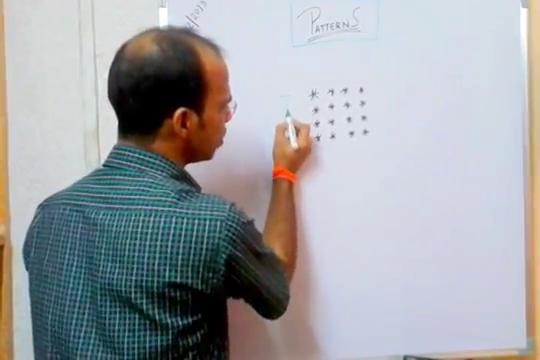 PATTERNS
* * * *
* * * *
* * * *
* * * *